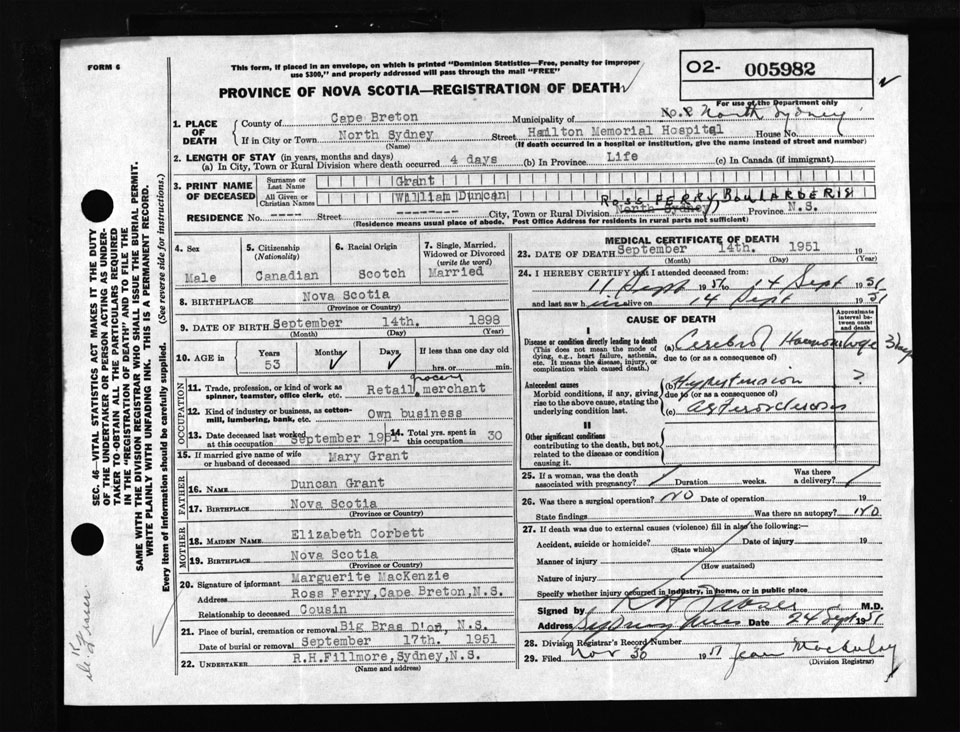 FORM 6
This form, if placed in an envelope, on which is printed "Dominion Statistics—Free, penalty for improper
use $300," and properly addressed will pass through the mail "FREE"
O2- 005982
PROVINCE OF NOVA SCOTIA—REGISTRATION OF DEATH
For use of the Department only
1. PLACE OF DEATH
County of Cape Breton Municipality of No. 2 North Sydney
If in City or Town North Sydney Street Hamilton Memorial Hospital House No.
(Name) (If death occurred in a hospital or institution, give the name instead of street and number)
2. LENGTH OF STAY (in years, months and days)
(a) In City, Town or Rural Division where death occurred 4 days (b) In Province Life (c) In Canada (if immigrant)
3. PRINT NAME OF DECEASED
Surname or Last Name Grant
All Given or Christian Names William Duncan
ROSS FERRY, BOULARDERIE
RESIDENCE No. ---- Street -------- City, Town or Rural Division North Sydney Province N.S.
(Residence means usual place of abode. Post Office Address for residents in rural parts not sufficient)
4. Sex
Male
5. Citizenship (Nationality)
Canadian
6. Racial Origin
Scotch
7. Single, Married, Widowed or Divorced (write the word)
Married
8. BIRTHPLACE Nova Scotia
(Province or Country)
9. DATE OF BIRTH September 14th. 1898
(Month) (Day) (Year)
10. AGE in Years Months Days If less than one day old
53 hrs. or min.
OCCUPATION
11. Trade, profession, or kind of work as spinner, teamster, office clerk, etc. Retail grocery merchant
12. Kind of industry or business, as cotton-mill, lumbering, bank, etc. Own business
13. Date deceased last worked at this occupation September 1951
14. Total yrs. spent in this occupation 30
15. If married give name of wife or husband of deceased Mary Grant
FATHER
16. NAME Duncan Grant
17. BIRTHPLACE Nova Scotia
(Province or Country)
MOTHER
18. MAIDEN NAME Elizabeth Corbett
19. BIRTHPLACE Nova Scotia
(Province or Country)
20. Signature of informant Marguerite MacKenzie
Address Ross Ferry, Cape Breton, N.S.
Relationship to deceased Cousin
21. Place of burial, cremation or removal Big Bras D'or, N.S.
Date of burial or removal September 17th. 1951
22. UNDERTAKER R.H.Fillmore, Sydney, N.S.
(Name and address)
MEDICAL CERTIFICATE OF DEATH
23. DATE OF DEATH September 14th. 1951 19
(Month) (Day) (Year)
24. I HEREBY CERTIFY that I attended deceased from:
11 Sept 1951 to 14 Sept 1951
and last saw him alive on 14 Sept 1951
CAUSE OF DEATH
Approximate interval between onset and death
I
Disease or condition directly leading to death
(This does not mean the mode of dying, e.g., heart failure, asthenia, etc. It means the disease, injury, or complication which caused death.)
(a) Cerebral Haemorrhage 3 days
due to (or as a consequence of)
Antecedent causes
Morbid conditions, if any, giving rise to the above cause, stating the underlying condition last.
(b) Hypertension ?
due to (or as a consequence of)
(c)
II
Other significant conditions
contributing to the death, but not related to the disease or condition causing it.
25. If a woman, was the death associated with pregnancy? Duration weeks. Was there a delivery?
26. Was there a surgical operation? NO Date of operation 19
State findings Was there an autopsy? NO
27. If death was due to external causes (violence) fill in also the following:—
Accident, suicide or homicide? Date of injury 19
(State which)
Manner of injury
(How sustained)
Nature of injury
Specify whether injury occurred in industry, in home, or in public place
Signed by M.D.
Address Sydney Mines Date 24 Sept 1951
28. Division Registrar's Record Number
29. Filed Nov 30 1951
(Division Registrar)
SEC. 46 VITAL STATISTICS ACT MAKES IT THE DUTY
OF THE UNDERTAKER OR PERSON ACTING AS UNDER-
TAKER TO OBTAIN ALL THE PARTICULARS REQUIRED
IN THE "REGISTRATION OF DEATH" AND TO FILE THE
SAME WITH THE DIVISION REGISTRAR WHO SHALL ISSUE THE BURIAL PERMIT.
WRITE PLAINLY WITH UNFADING INK. THIS IS A PERMANENT RECORD.
Every item of information should be carefully supplied. (See reverse side for instructions.)